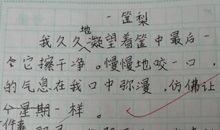 一筐梨
我久久地凝望着筐中最后一
令它擦干净。慢慢地咬一口,
的气息在我口中弥漫,仿佛让
个星期一样。
件事